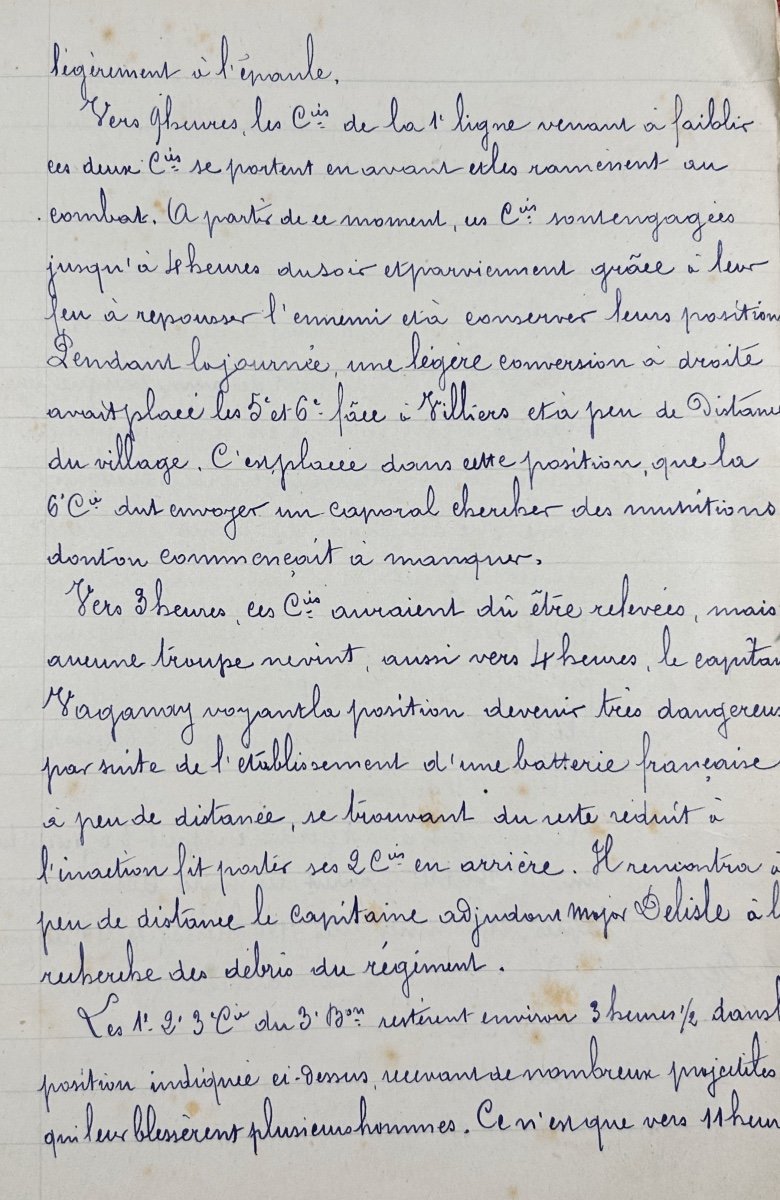 légèrement à l'épaule.
Vers 9 heures, les Cies de la 1e ligne venant à faiblir
ces deux Cies se portent en avant et les ramènent au
combat. A partir de ce moment, ces Cies sont engagées
jusqu'à 4 heures du soir et parviennent grâce à leur
feu à repousser l'ennemi et à conserver leurs position
Pendant la journée, une légère conversion à droite
avait placé les 5e et 6e face à Villiers et à peu de Distanc
du village. C'est placée dans cette position, que la
6e Cie dut envoyer un caporal chercher des munitions
dont on commençait à manquer.
Vers 3 heures, ces Cies auraient dû être relevées, mais
aucune troupe ne vint, aussi vers 4 heures, le capitai
Vaganay voyant la position devenir très dangereus
par suite de l'établissement d'une batterie française
à peu de distance, se trouvant du reste réduit à
l'inaction fit porter ses 2 Cies en arrière. Il rencontra à
peu de distance le capitaine adjudant major Delisle à l
recherche des débris du régiment.
Les 1e 2e 3e Cie du 3e Bon restèrent environ 3 heures 1/2 dans l
position indiquée ci-dessus, recevant de nombreux projectiles
qui leur blessèrent plusieurs hommes. Ce n'est que vers 11 heur